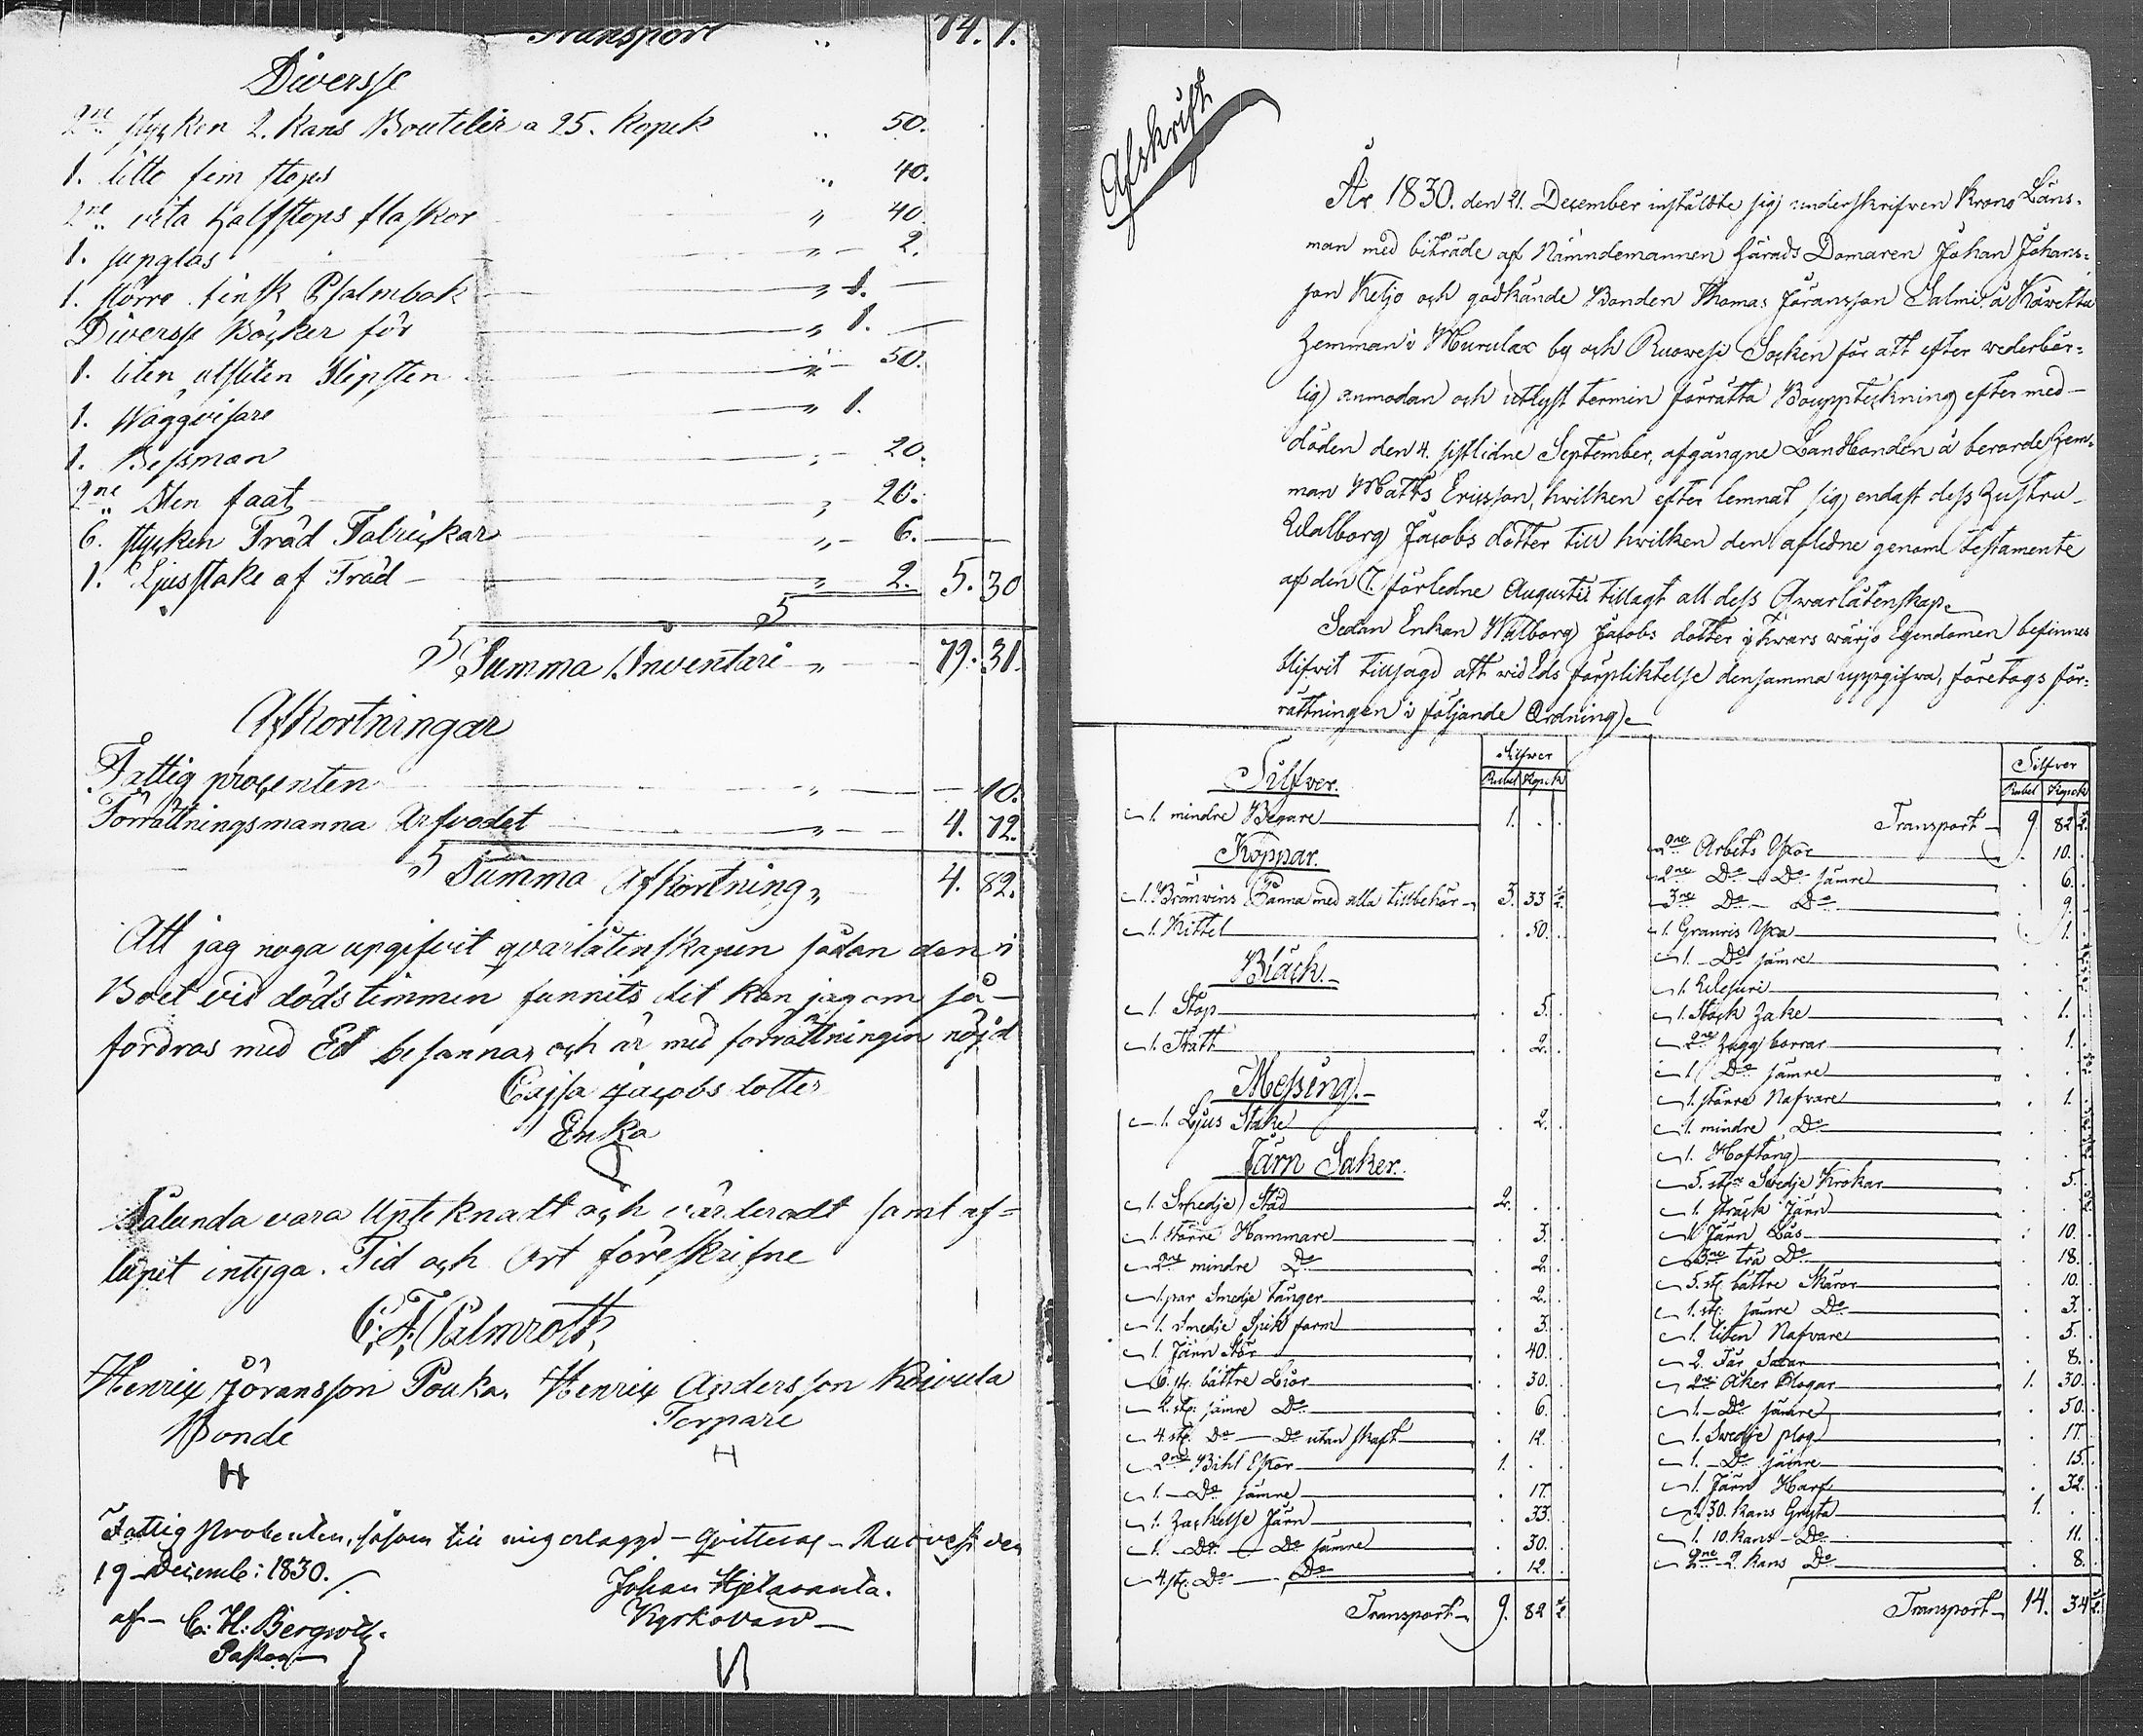 Transport " 74. 1.
Diversse
2ne stycken 2. Kans Bouteler a 25. Kopek " 50.
1. litto fem stops " 40.
2ne vita Halfstops flaskor " 40.
1. supglas " 2.
1. större finsk Psalmbok " 1. —
Diversse Böcker för " 1. —
1. liten utsliten Slipsten " 50.
1. Wäggvisare " 1.
1. Bessman " 20.
2ne Sten faat " 20.
6. stycken Träd Talrickar " 6.
1. Ljusstake af Träd " 2. 5. 30
Summa Inventari " 79. 31.
Afkortningar
Fattig procenten " 10.
Förrättningsmanna Arfvodet " 4. 72.
Summa Afkortning " 4. 82.
Att jag noga upgifvit qvarlåtenskapen sådan den i
Boet vid dödstimmen funnits det kan jag om så
fordras med Ed besanna, och är med förrättningen nöjd
Cajsa Jacobs dotter
Enka
Sålunda vara Upteknadt och värderadt samt af=
lupit intyga. Tid och Ort föreskrifne
C. F. Palmroth
Henric Göransson Pouka. Henric Andersson Koivula
Bonde Torpare
Fattig Procenten, såsom til mig erlaggd – qvitteras – Ruovesi den
19 Decemb: 1830.
af – C: H: Bergroth Johan Hjelasanta.
Pastor Kyrkovard
Afskrift
År 1830. den 21. December inställdte sig underskrifven Krono Läns-
man med biträde af Nämndemannen Härads Domaren Johan Johans=
son Keljo och godkände Bonden Thomas Jöransson Salmi å Kåwetta
Hemman i Murulax by och Ruowesi Socken för att efter wederbör=
lig anmodan och utlyst termin förrätta Bouppteckning efter med
döden den 4. sistlidne September, afgångne Landbonden å berörde Hem-
man Matts Ericsson, hwilken efter lemnat sig endast dess Hustru
Walborg Jacobs dotter till hwilken den aflidne genom testamente
af den 7. förledne Augusti tillagt all dess Qwarlåtenskap.
Sedan Enkan Walborg Jacobs dotter i hwars wärjo Egendomen befinnes
blifvit tillsagd att wid Eds förpliktelse densamma uppgifwa, företogs för=
rättningen i följande Ordning.
Silfwer
Rubel Kopek
Silfver.
1. mindre Begare 1. . .
Koppar.
1. Bränwins Panna med alla tillbehör 3. 33 1/2
1. Kittel . 50.
Bläck.
1. Stop . 5.
1. Tratt . 2.
Messing.
1. Ljus Stake . 2.
Järn Saker.
1. Smedje Städ 2. .
1. större Hammare . 3.
2ne mindre Do . 2.
1. par Smedje tänger . 2.
1. Smedje Spik form . 3.
1. Järn Stör . 40.
6. st. bättre Liör . 30.
2. st: sämre Do . 6.
4. st: Do — Do utan skaft . 12.
2ne Bihl Exor 1. .
1. — Do sämre . 17.
1. Hackelse Järn . 33.
1. — Do — Do sämre . 30.
4. st: Do — Do . 12.
Transport 9. 82 1/2
Silfver
Rubel Kopek
Transport 9. 82 1/2
2ne Arbets Yxor . 10.
2ne Do — Do sämre . 6.
3ne Do — Do . 9.
1. Granris Yxa . 1.
1. — Do sämre
1. Stock Hake . 1.
2ne Hugg borrar . 1.
1. Do sämre
1. större Nafvare . 1.
1. mindre Do
1. Hoftång
5. st. Swedje Krokar . 5.
1. sträck Järn
1. Järn Lås . 10.
3ne trä Do . 18.
5. st: bättre Skäror . 10.
1. st: sämre Do . 3.
1. liten Nafvare . 5.
2. Får Saxar . 8.
2ne Åker Plogar 1. 30.
1. — Do sämre . 50.
1. Swedje plog . 17.
1. — Do sämre . 15.
1. Järn Harf . 32.
1. 30. Kans Gryta 1. .
1. 10. Kans — Do . 11.
2ne 2. Kans Do . 8.
Transport 14. 34 1/2